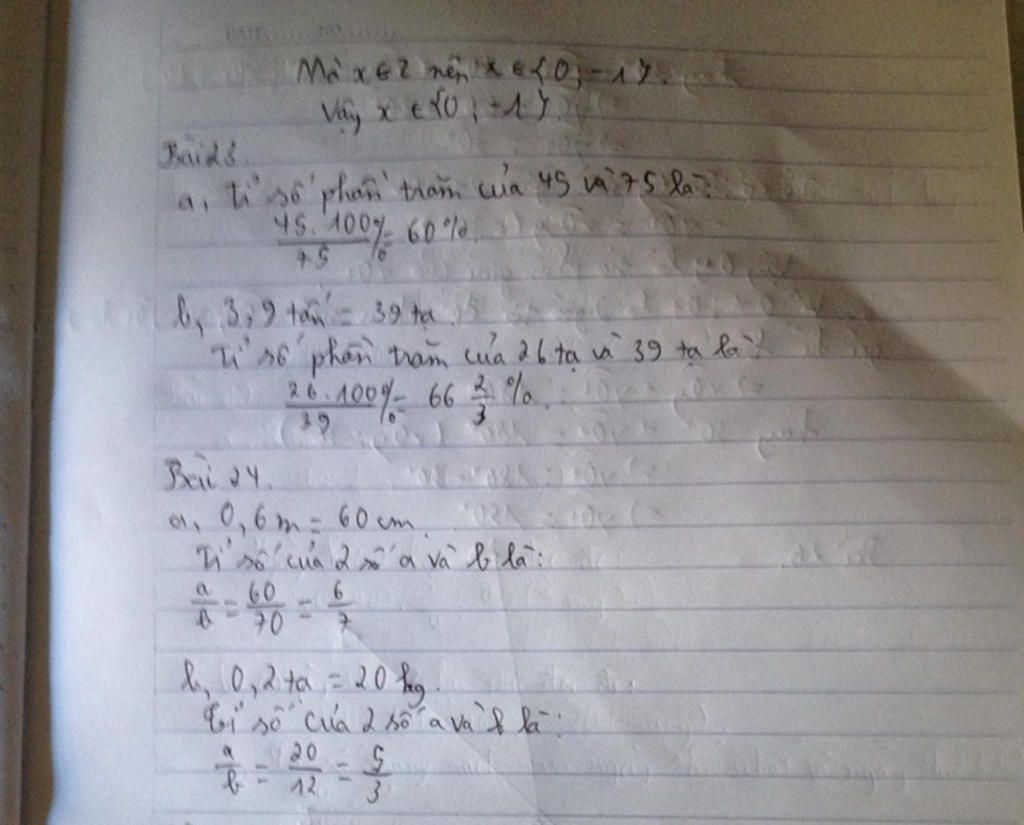 DATE NO
Mà x ∈ Z nên x ∈ {0; -1}.
Vậy x ∈ {0; -1}.
Bài 23
a, Tỉ số phần trăm của 45 và 75 là:
45.100/75 % = 60%.
b, 3,9 tấn = 39 tạ.
Tỉ số phần trăm của 26 tạ và 39 tạ là:
26.100/39 % = 66 2/3 %.
Bài 24.
a, 0,6 m = 60 cm.
Tỉ số của 2 số a và b là:
a/b = 60/70 = 6/7
b, 0,2 tạ = 20 kg.
Tỉ số của 2 số a và b là:
a/b = 20/12 = 5/3